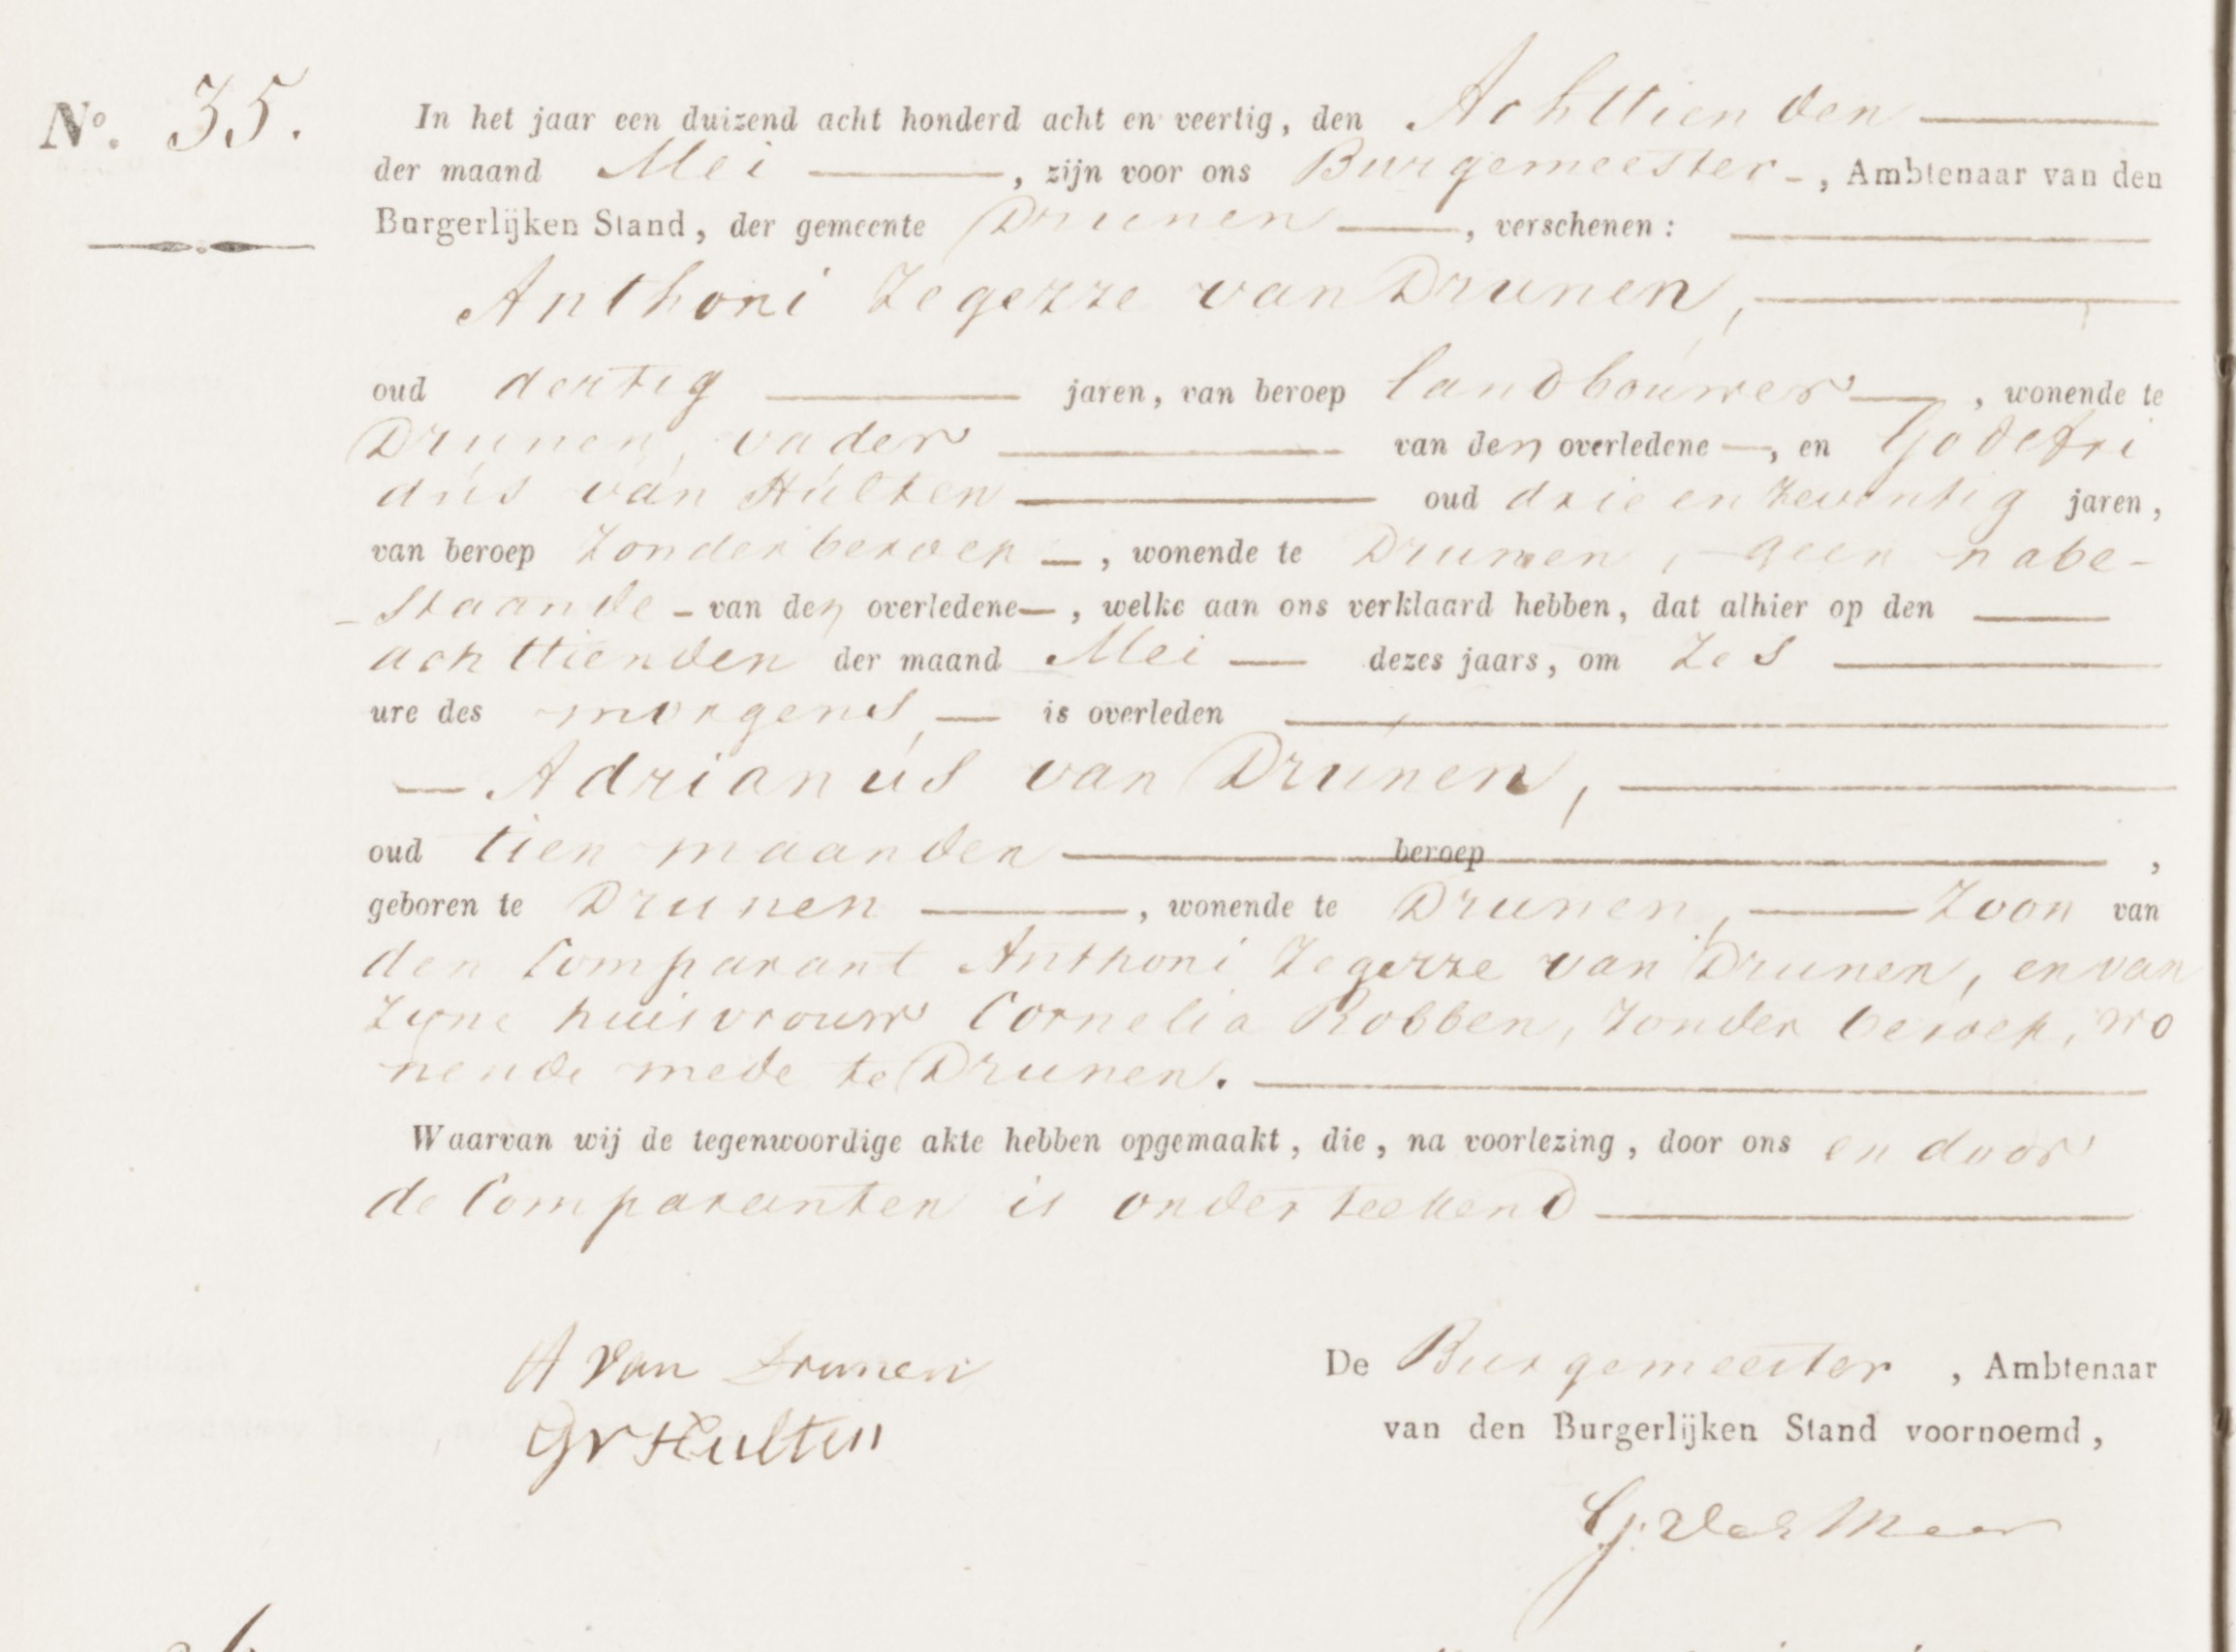 No. 35.
In het jaar een duizend acht honderd acht en veertig, den Achttienden
der maand Mei, zijn voor ons Burgemeester, Ambtenaar van den
Burgerlijken Stand, der gemeente Drunen, verschenen:
Anthoni Zegerze van Drunen,
oud dertig jaren, van beroep landbouwer, wonende te
Drunen, vader van den overledene, en Godefri
dus van Hulten oud drie en zeventig jaren,
van beroep zonder beroep, wonende te Drunen, geen nabe-
staande van den overledene, welke aan ons verklaard hebben, dat alhier op den
achttienden der maand Mei dezes jaars, om zes
ure des morgens, is overleden
Adrianus van Drunen,
oud tien maanden beroep,
geboren te Drunen, wonende te Drunen, Zoon van
den Comparant Anthoni Zegerze van Drunen, en van
zyne huisvrouw Cornelia Robben, zonder beroep, wo
nende mede te Drunen.
Waarvan wij de tegenwoordige akte hebben opgemaakt, die, na voorlezing, door ons en door
de Comparanten is onderteekend
A van Drunen
GvHulten
De Burgemeester, Ambtenaar
van den Burgerlijken Stand voornoemd,